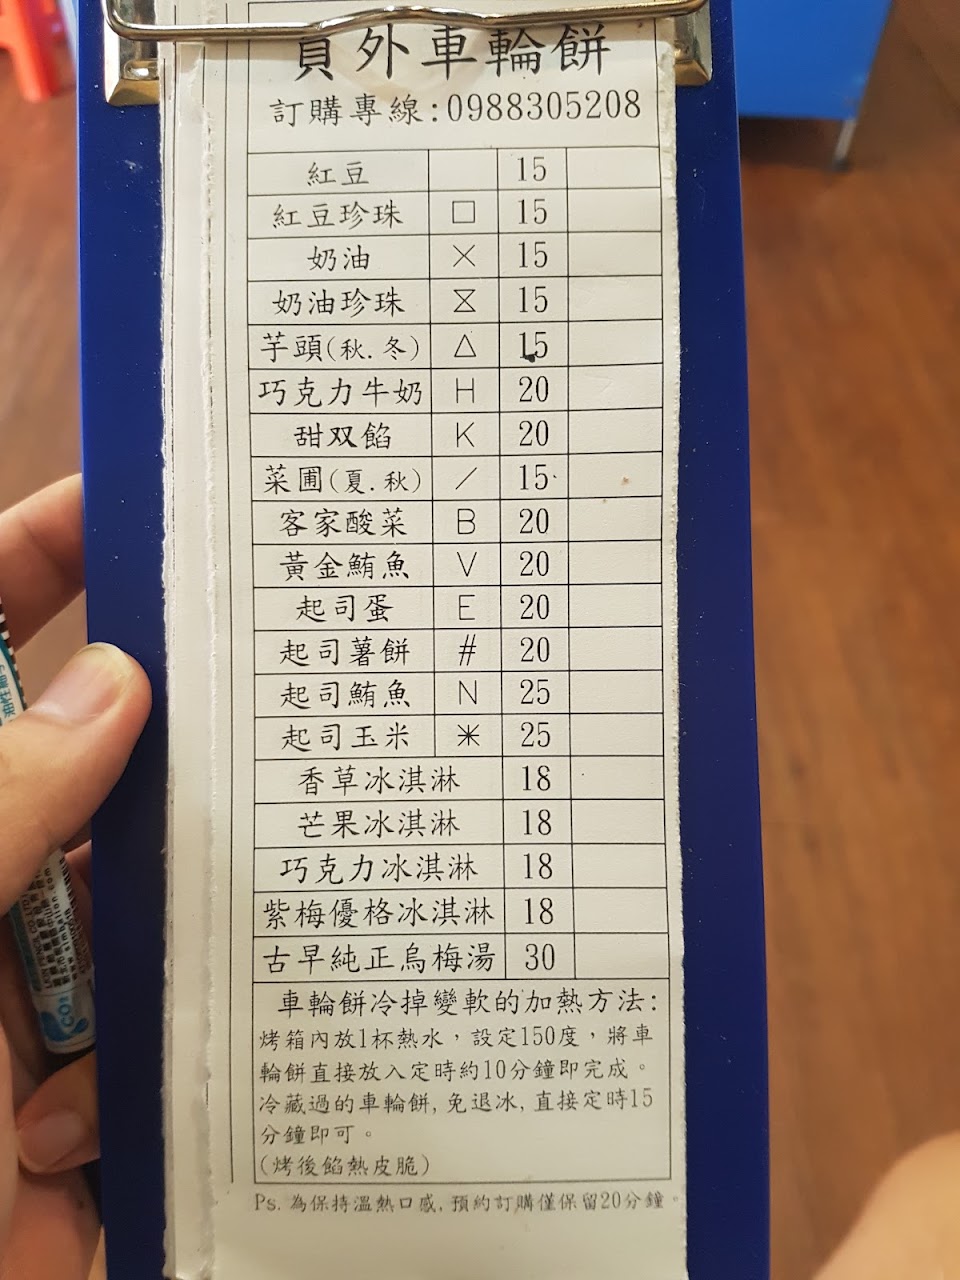 員外車輪餅
訂購專線:0988305208
紅豆 15
紅豆珍珠 □ 15
奶油 × 15
奶油珍珠 ⧖ 15
芋頭(秋.冬) △ 15
巧克力牛奶 H 20
甜双餡 K 20
菜圃(夏.秋) ／ 15
客家酸菜 B 20
黃金鮪魚 V 20
起司蛋 E 20
起司薯餅 # 20
起司鮪魚 N 25
起司玉米 ＊ 25
香草冰淇淋 18
芒果冰淇淋 18
巧克力冰淇淋 18
紫梅優格冰淇淋 18
古早純正烏梅湯 30
車輪餅冷掉變軟的加熱方法:
烤箱內放1杯熱水，設定150度，將車
輪餅直接放入定時約10分鐘即完成。
冷藏過的車輪餅,免退冰,直接定時15
分鐘即可。
(烤後餡熱皮脆)
Ps.為保持溫熱口感,預約訂購僅保留20分鐘。
CO2